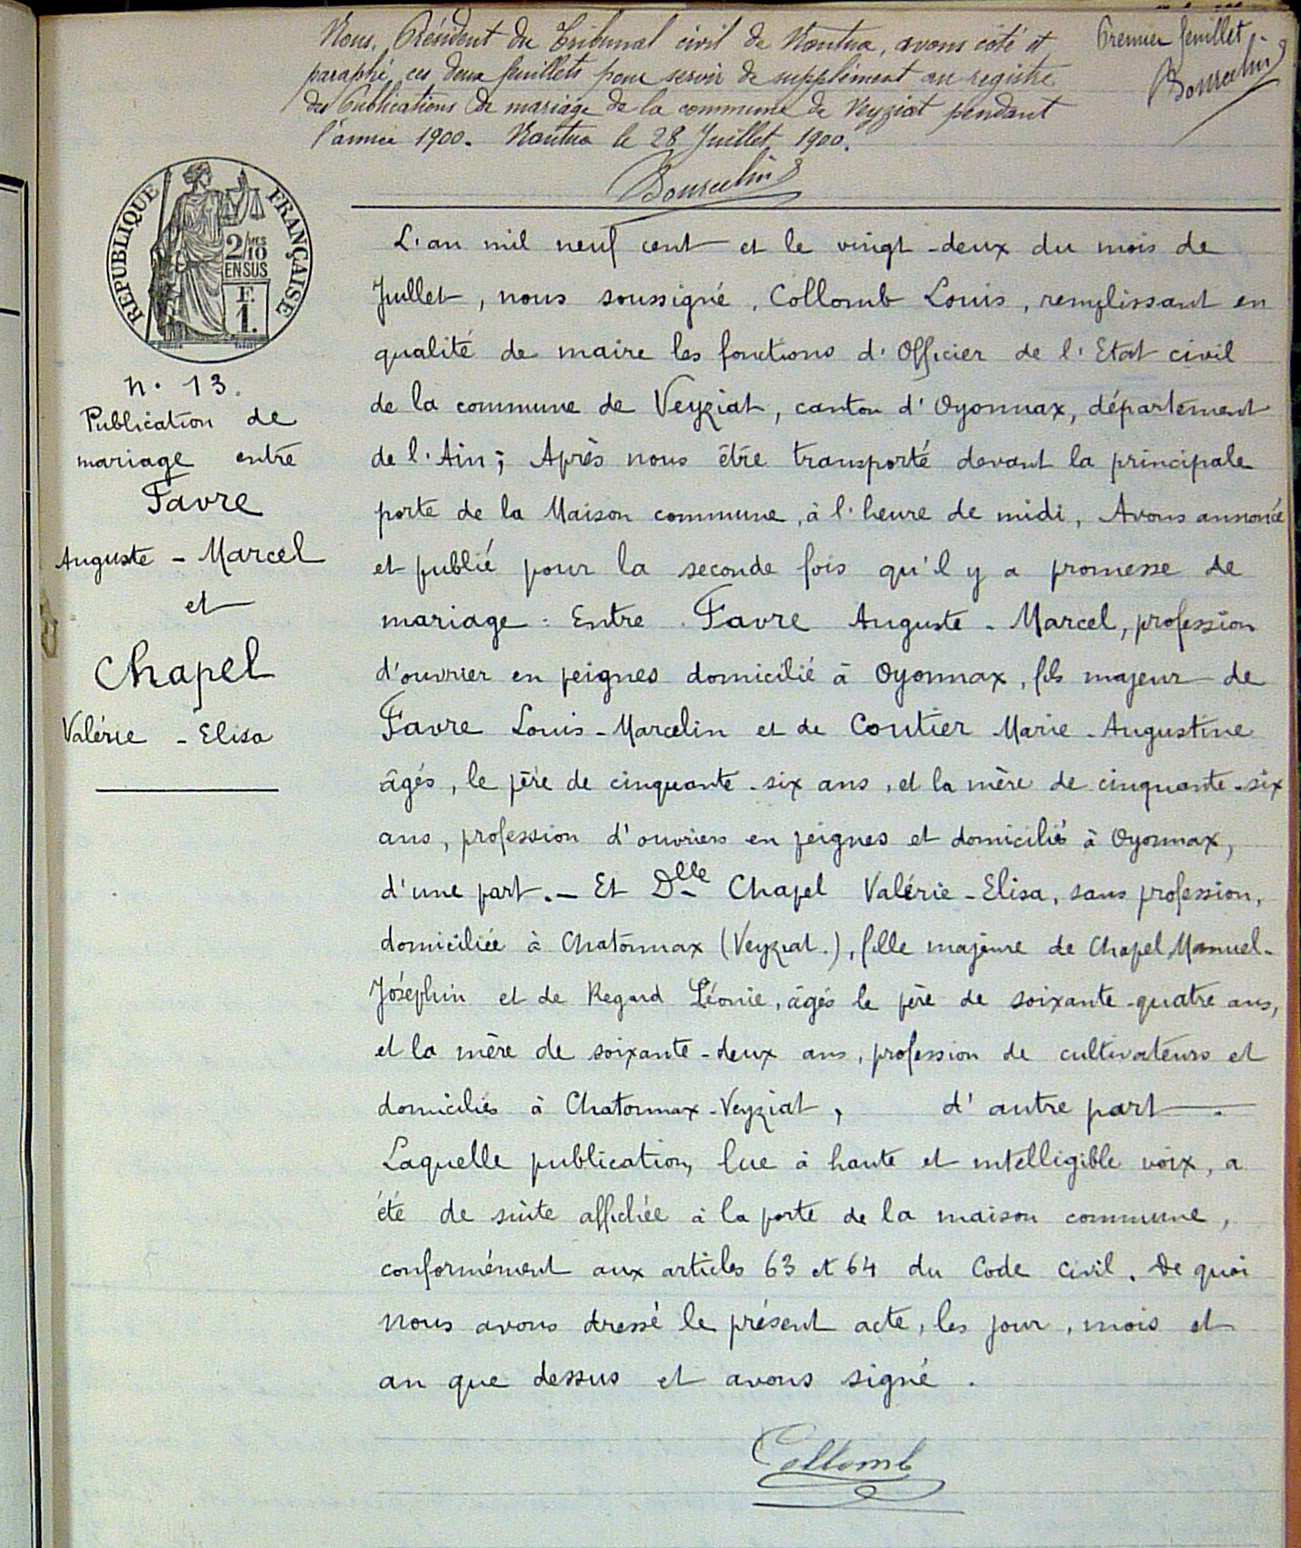 Nous, Président du Tribunal civil de Nantua, avons coté et
paraphé ces deux feuillets pour servir de supplément au registre
des Publications de mariage de la commune de Veyziat pendant
l'année 1900. Nantua le 28 Juillet 1900.
Premier feuillet.
RÉPUBLIQUE FRANÇAISE
2/10 MES
EN SUS
F.
1.
n. 13.
Publication de
mariage entre
Favre
Auguste - Marcel
et
Chapel
Valérie - Elisa
L'an mil neuf cent et le vingt-deux du mois de
Juillet, nous soussigné, Collomb Louis, remplissant en
qualité de maire les fonctions d'Officier de l'Etat civil
de la commune de Veyziat, canton d'Oyonnax, département
de l'Ain; Après nous être transporté devant la principale
porte de la Maison commune, à l'heure de midi, Avons annoncé
et publié pour la seconde fois qu'il y a promesse de
mariage : Entre Favre Auguste - Marcel, profession
d'ouvrier en peignes domicilié à Oyonnax, fils majeur de
Favre Louis - Marcelin et de Coutier Marie - Augustine
âgés, le père de cinquante-six ans, et la mère de cinquante-six
ans, profession d'ouvriers en peignes et domiciliés à Oyonnax,
d'une part. - Et Dlle Chapel Valérie - Elisa, sans profession,
domiciliée à Chatonnax (Veyziat.), fille majeure de Chapel Manuel-
Joséphin et de Regard Léonie, âgés le père de soixante-quatre ans,
et la mère de soixante-deux ans, profession de cultivateurs et
domiciliés à Chatonnax-Veyziat, d'autre part.
Laquelle publication, lue à haute et intelligible voix, a
été de suite affichée à la porte de la maison commune,
conformément aux articles 63 et 64 du Code civil. De quoi
nous avons dressé le présent acte, les jour, mois et
an que dessus et avons signé.
Collomb